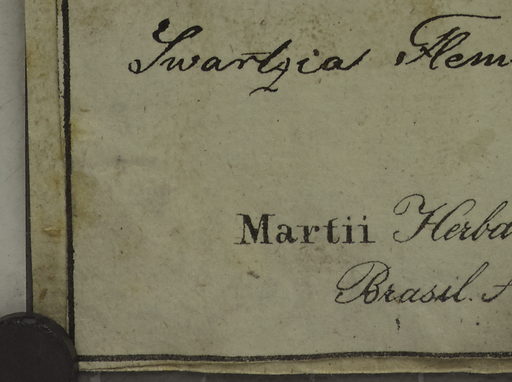 Swartzia Flem
Martii Herba
Brasil.